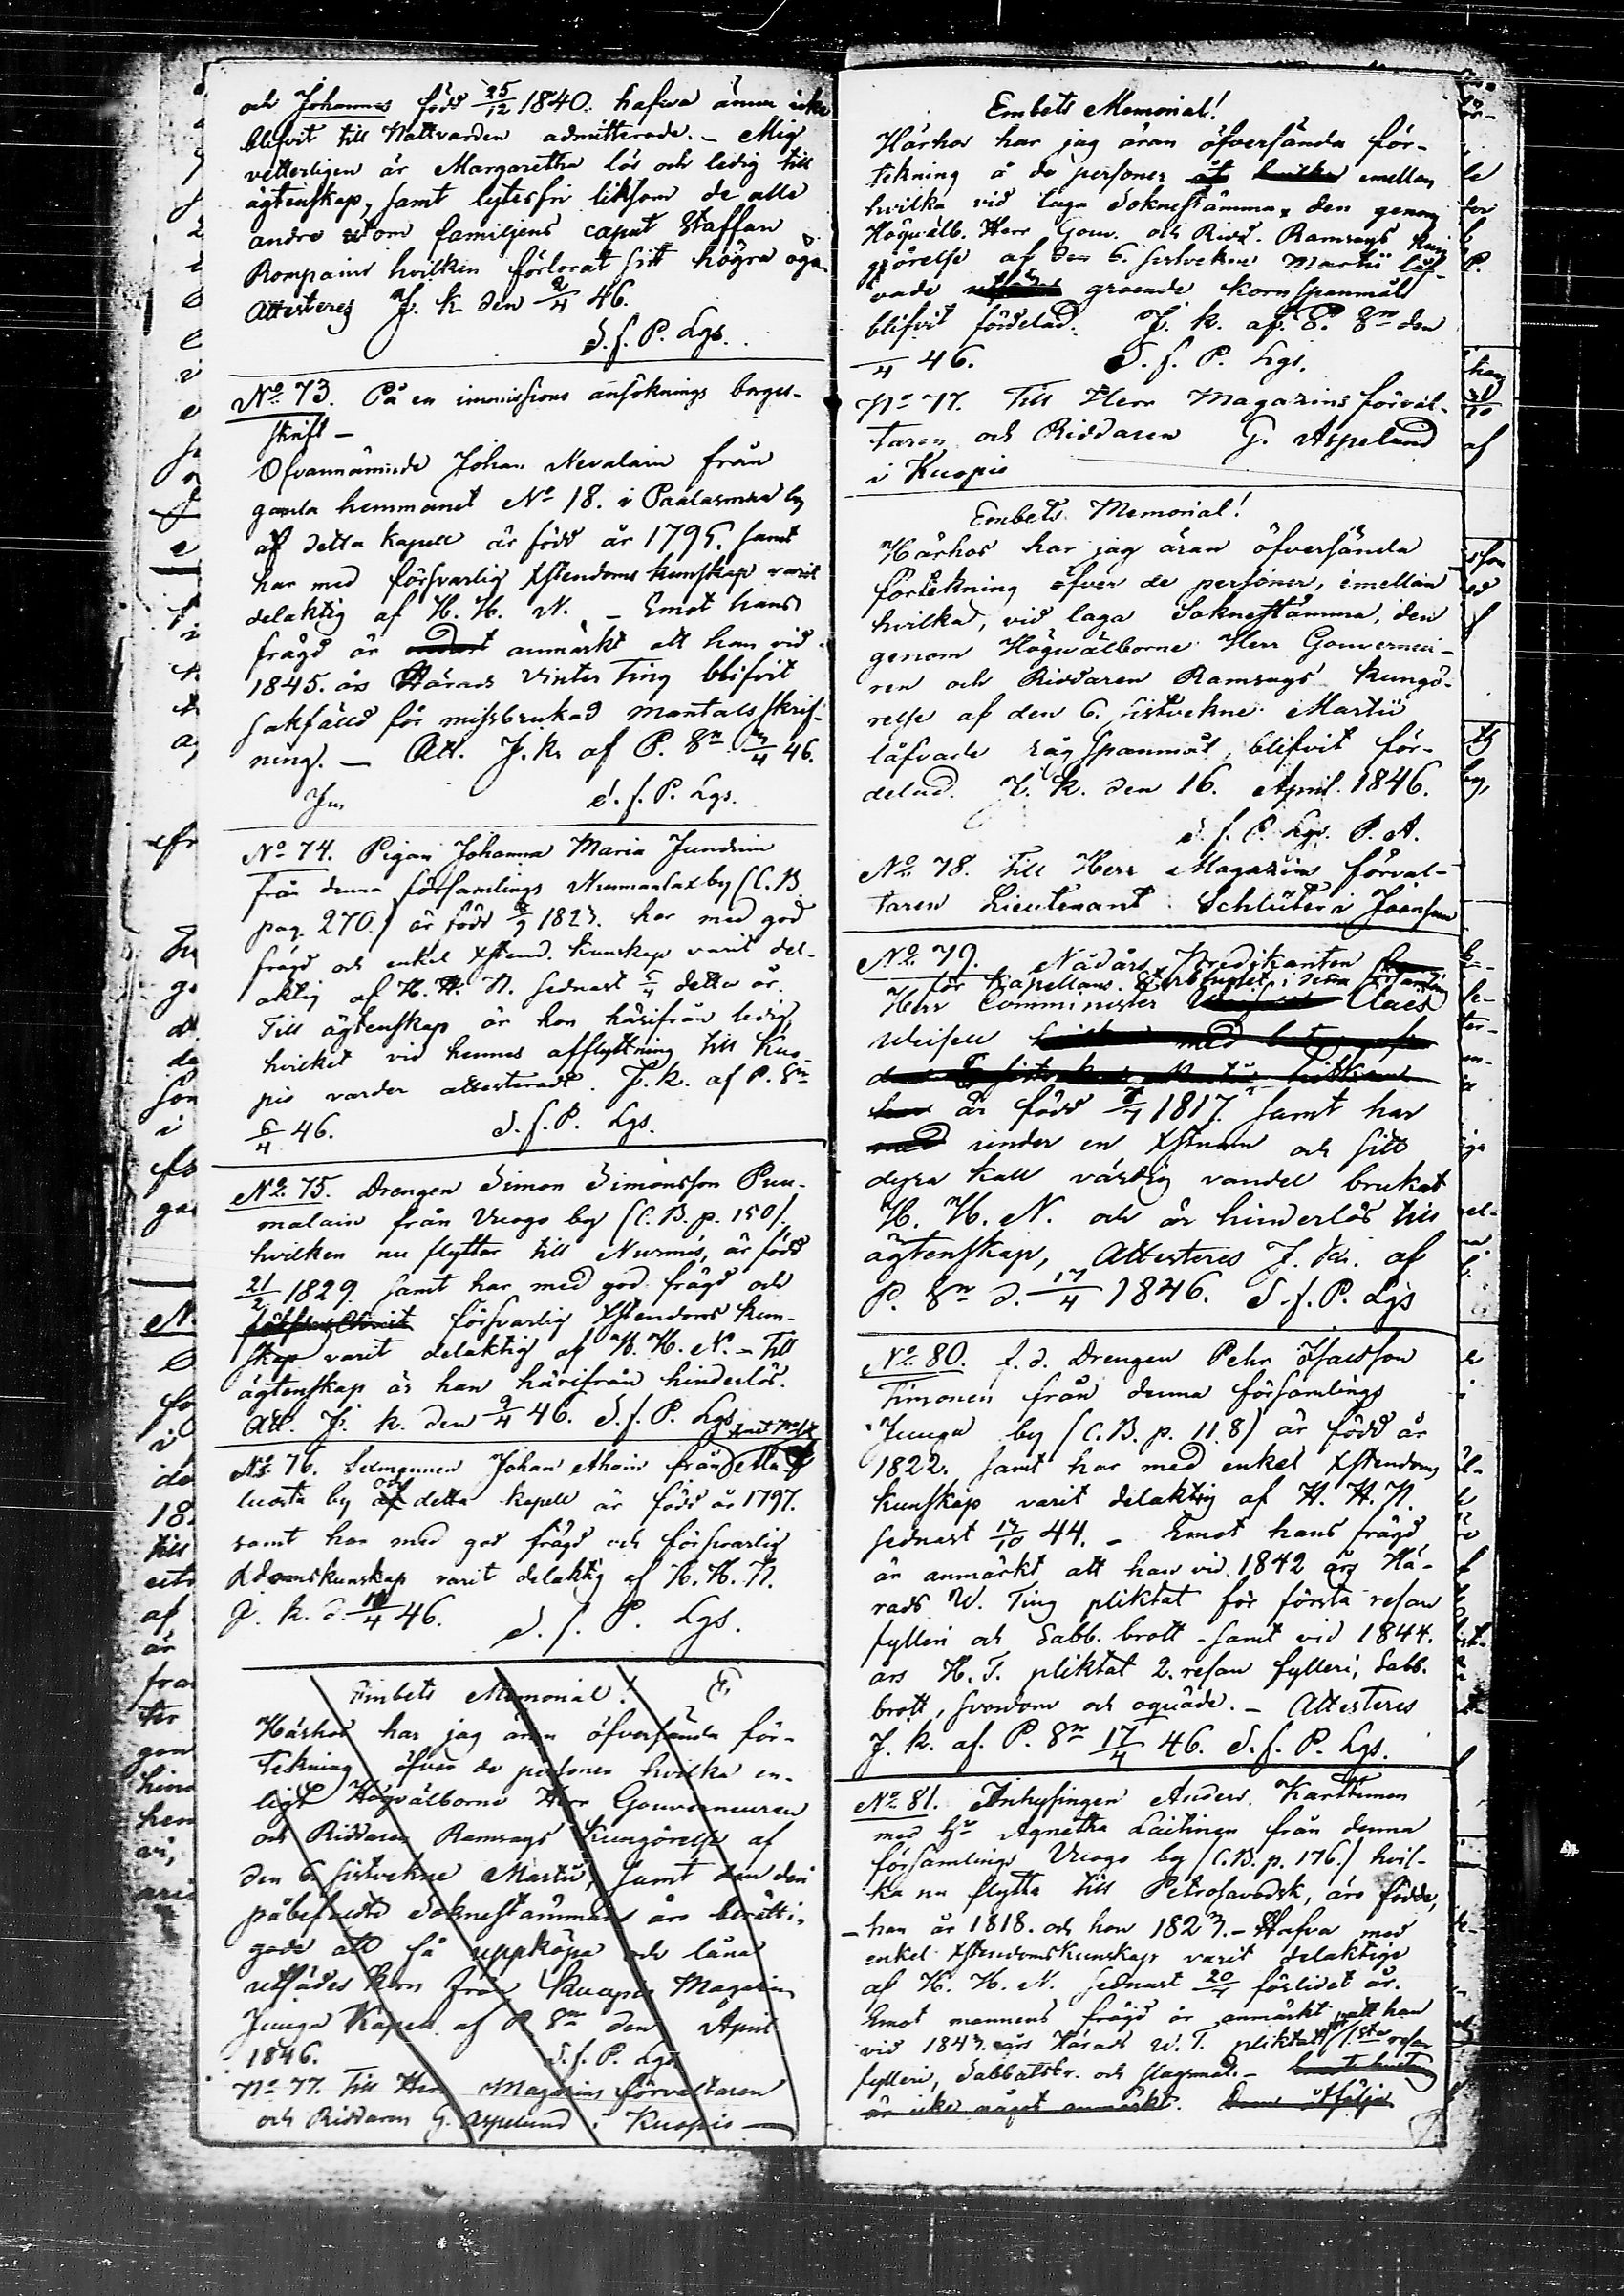 och Johannes född 25/12 1840. hafwa ännu icke
blifvit till Nattvarden admitterade. – Mig
vetterligen är Margaretha lös och ledig till
ägtenskap, samt lytesfri liksom de alla
andre utom familjens caput Staffan
Rompain hvilken förlorat sitt högra öga.
Attesteres J. k. den 2/4 46.
S. f. P. Lgs.
No 73. På en immissions ansöknings borges-
skrift –
Ofvannämnde Johan Nevalain från
gamla hemmanet No 18. i Paalasmaa by
af detta kapell är född år 1795. samt
har med försvarlig Xstendoms kunskap varit
delaktig af H. H. N. – Emot hans
frägd är anmärkt att han vid
1845. års Härads Vinter Ting blifvit
sakfälld för missbrukad mantalsskrif-
ning. – Att. J. k. af P. 8n 3/4 46.
S. f. P. Lgs.
No 74. Pigan Johanna Maria Jundin
från denna församlings by (C. B.
pag. 270.) är född 1823. har med god
frägd och enkel Xstend. kunskap varit del-
aktig af H. H. N. sednast 5/4 detta år.
Till ägtenskap är hon härifrån ledig,
hvilket vid hennes afflyttning till Kuo-
pio varder attesteradt. J. k. af P. 8n
6/4 46. S. f. P. Lgs.
No 75. Drengen Simon Simonsson Puu-
malain från Vuogo by (C. B. p. 150).
hvilken nu flyttar till Nurmis, är född
21/2 1829. samt har med god frägd och
försvarlig Xstendoms kun-
skap varit delaktig af H. H. N. – Till
ägtenskap är han härifrån hinderlös.
Att. J. k. den 9/4 46. S. f. P. Lgs
No 76. Johan från
by af detta kapell är född år 1797.
samt har med god frägd och försvarlig
Xdomskunskap varit delaktig af H. H. N.
J. k. d. 4 46. S. f. P. Lgs.
Embets Memorial!
Härhos har jag äran öfversända för-
tekning öfver de personer hvilka en-
ligt Högvälborne Herr Gouverneuren
och Riddaren Ramsays Kungörelse af
den 6. sistvekne Martii, samt den deri
påbefallte Soknestämman äro berätti-
gade att få uppköpa och låna
utsädes korn från Kuopio Magazin
Juuga Kapell af P. 8n den April
1846. S. f. P. Lgs.
No 77. Till Herr Magazins förvaltaren
och Riddaren G. Aspelund i Kuopio –
Embets Memorial!
Härhos har jag äran öfversända för-
tekning å de personer emellan
hvilka vid laga Soknestämma, den genom
Högwälb. Herr Gouv. och Ridd. Ramsays Kun-
görelse af den 6. sistvekne Martii låf-
vade groende kornspanmål
blifvit fördelad. J. k. af P. 8n den
/4 46. S. f. P. Lgs.
No 77. Till Herr Magazins förval-
taren och Riddaren G. Aspelund
i Kuopio
Embets Memorial!
Härhos har jag äran öfversända
förtekning öfver de personer, imellan
hvilka, vid laga Soknestämma, den
genom Högwälborne Herr Gouverneu-
ren och Riddaren Ramsays kungö-
relse af den 6. sistvekne Martii
låfvade rågspanmål, blifvit för-
delad. J. k. den 16. April. 1846.
S. f. P. Lgs. P. A.
No 78. Till Herr Magazins förval-
taren Lieutenant Schlüter i Joensuu
No 79. Nådårs Predikanten
för Kapellans
Herr Comminister Claes
är född 1817. samt har
under en Xstnam och sitt
dyra kall värdig vandel brukat
H. H. N. och är hinderlös till
ägtenskap, Attesteres J. k. af
P. 8n d. 17/4 1846. S. f. P. Lgs
No 80. f. d. Drengen Pehr Isacsson
Timonen från denna församlings
Juuga by (C. B. p. 118) är född år
1822. samt har med enkel Xstendoms
kunskap varit delaktig af H. H. N.
sednast 13/10 44. – Emot hans frägd
är anmärkt att han vid 1842 års Hä-
rads W. Ting pliktat för första resan
fylleri och Sabb. brott – samt vid 1844.
års H. T. pliktat 2. resan fylleri, Sabb.
brott, svordom och oquäde. – Attesteres
J. k. af. P. 8n 17/4 46. S. f. P. Lgs.
No 81. Inhysingen Anders Karttunen
med hu Agnetha Laitinen från denna
församlings Vuogo by (C. B. p. 176.) hvil-
ka nu flytta till Petrosavodsk, äro födde,
– han år 1818. och hon 1823. – Hafva med
enkel Xstendomskunskap varit delaktige
af H. H. N. sednast förlidet år.
Emot mannens frägd är anmärkt att han
vid 1843. års Härads W. T. pliktat för 1sta resan
fylleri, Sabbatsbr. och slagsmål. –
är icke något anmärkt.